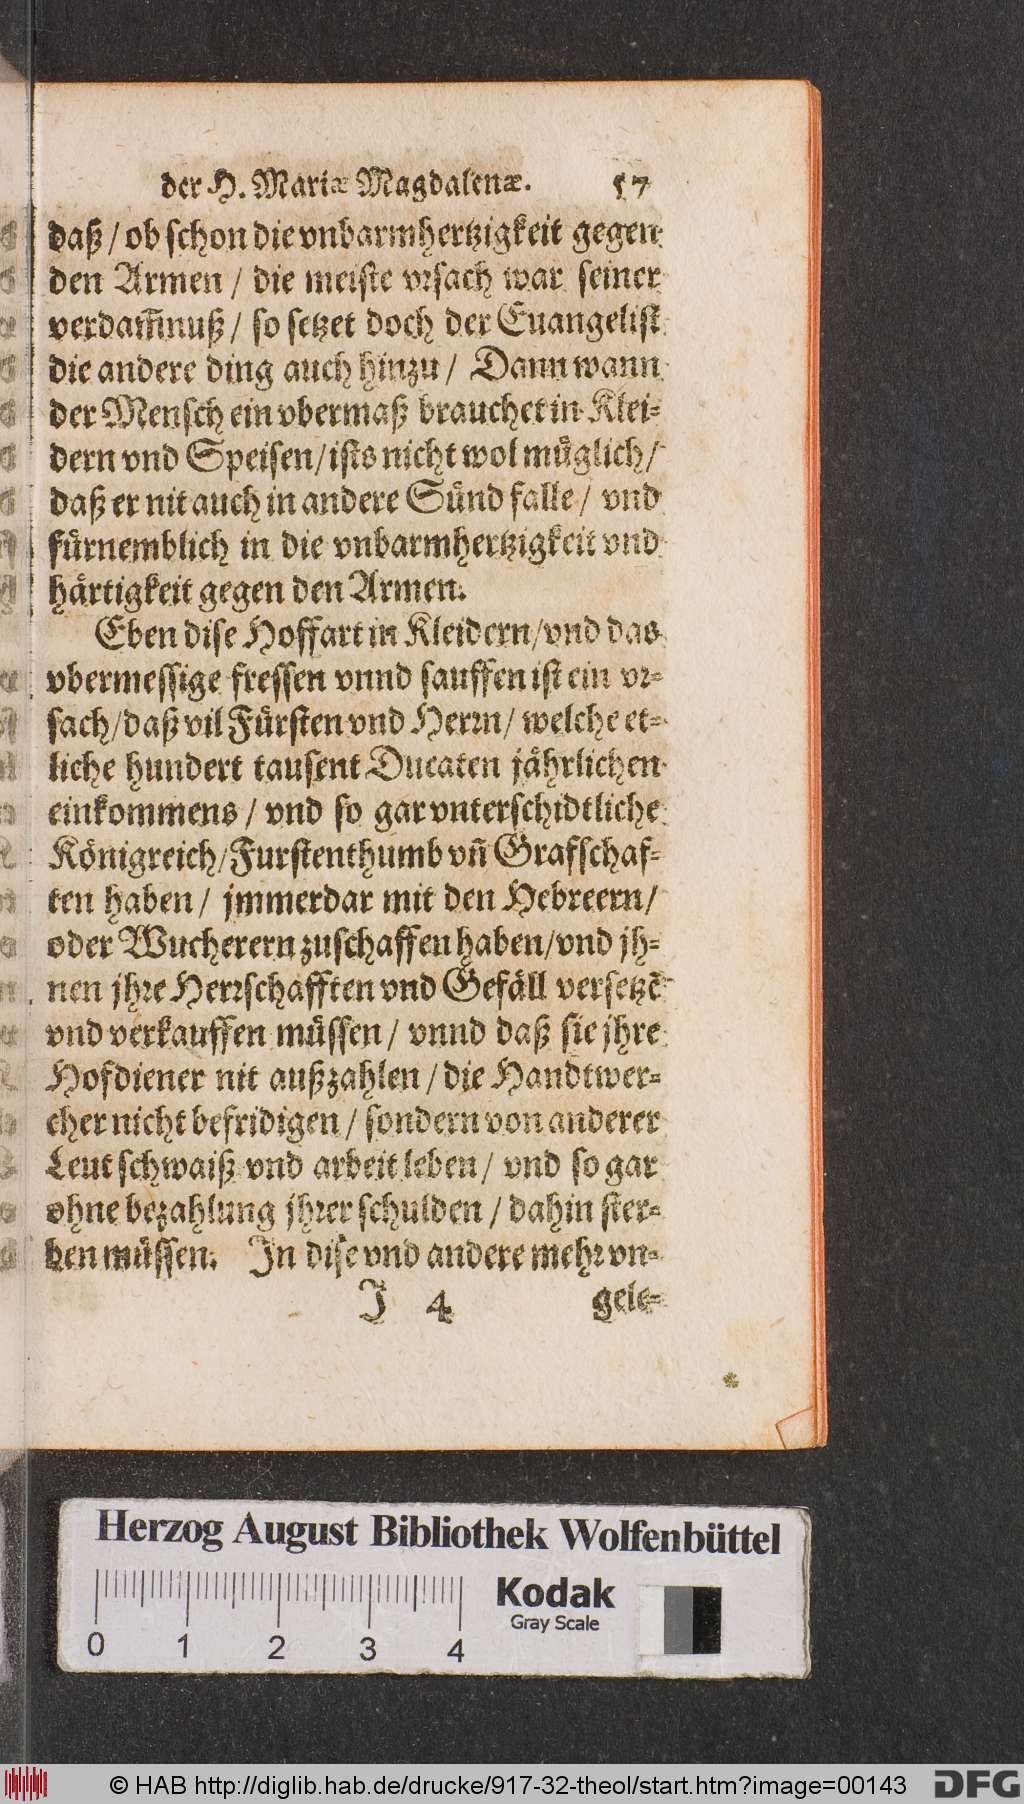 der H. Mariæ Magdalenæ. 57
daß / ob schon die vnbarmhertzigkeit gegen
den Armen / die meiste vrsach war seiner
verdam̃nuß / so setzet doch der Euangelist
die andere ding auch hinzu / Dann wann
der Mensch ein vbermaß brauchet in Klei-
dern vnd Speisen / ists nicht wol müglich /
daß er nit auch in andere Sünd falle / vnd
fürnemblich in die vnbarmhertzigkeit vnd
härtigkeit gegen den Armen.
Eben dise Hoffart in Kleidern / vnd das
vbermessige fressen vnnd sauffen ist ein vr-
sach / daß vil Fürsten vnd Herrn / welche et-
liche hundert tausent Ducaten jährlichen
einkommens / vnd so gar vnterschidtliche
Königreich / Furstenthumb vñ Grafschaf-
ten haben / jmmerdar mit den Hebreern /
oder Wucherern zuschaffen haben / vnd jh-
nen jhre Herrschafften vnd Gefäll versetzẽ
vnd verkauffen müssen / vnnd daß sie jhre
Hofdiener nit außzahlen / die Handtwer-
cher nicht befridigen / sondern von anderer
Leut schwaiß vnd arbeit leben / vnd so gar
ohne bezahlung jhrer schulden / dahin ster-
ben müssen. In dise vnd andere mehr vn-
J 4 gele-
Herzog August Bibliothek Wolfenbüttel
Kodak
Gray Scale
0 1 2 3 4
© HAB http://diglib.hab.de/drucke/917-32-theol/start.htm?image=00143
DFG